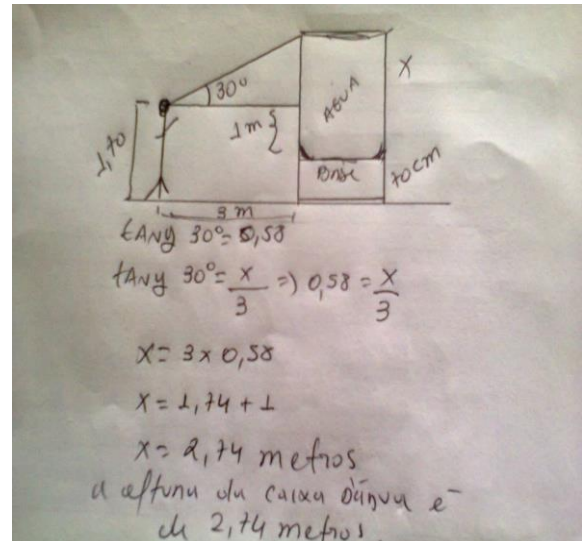 30°
X
ÁGUA
1,70
1m
Base
70cm
3 m
tANg 30°= 0,58
tANg 30°= X/3 => 0,58 = X/3
X= 3 x 0,58
X= 1,74 + 1
X= 2,74 metros
a altura da caixa D'água é
de 2,74 metros.